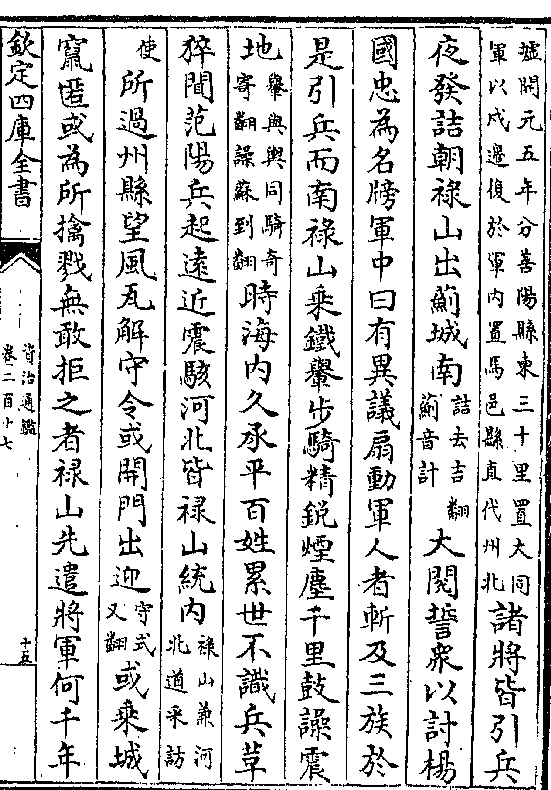 墟開元五年分善陽縣東三十里置大同
軍以戍邊復於軍内置馬邑縣直代州北
諸將皆引兵
夜發詰朝祿山出薊城南
詰去吉翻
薊音計
大閱誓衆以討楊
國忠為名牓軍中曰有異議扇動軍人者斬及三族於
是引兵而南祿山乗鐵轝步騎精銳煙塵千里鼓譟震
地
轝與輿同騎奇
寄翻譟蘇到翻
時海内久承平百姓累世不識兵革
猝聞范陽兵起逺近震駭河北皆祿山統内
祿山兼河
北道采訪
使
所過州縣望風瓦解守令或開門出迎
守式
又翻
或棄城
竄匿或為所擒戮無敢拒之者祿山先遣將軍何千年
欽定四庫全書
資治通鑑
卷二百十七
十五